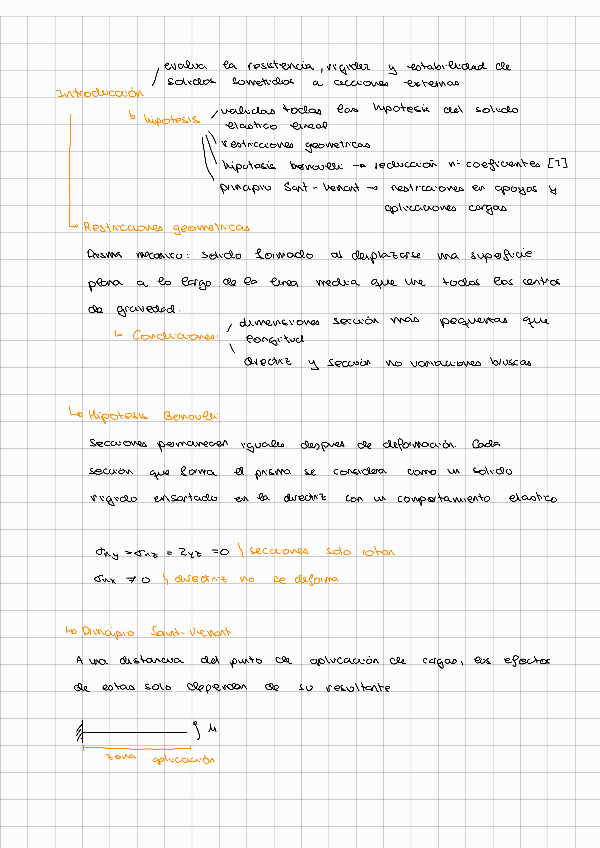 evalua la resistencia, rigidez y estabilidad de
solidos sometidos a acciones externas
Introducción
↳ hipotesis
validas todas las hipotesis del solido
elastico lineal
restricciones geometricas
hipotesis benoulli → reducción nº coeficientes [?]
principio Sant-Venant → restricciones en apoyos y
aplicaciones cargas
↳ Restricciones geometricas
Prisma mecanico: solido formado al desplazarse una superficie
plana a lo largo de la linea media que une todos los centros
de gravedad.
↳ Condiciones:
dimensiones sección más pequeñas que
longitud
directriz y sección no variaciones bruscas
↳ Hipotesis Benoulli
Secciones permanecen iguales despues de deformación. Cada
sección que forma el prisma se considera como un solido
rigido ensartado en la directriz con un comportamiento elastico
σny = σnz = τyz = 0 secciones solo rotan
σnx ≠ 0 directriz no se deforma
↳ Principio Saint-Venant
A una distancia del punto de aplicación de cargas, los efectos
de estas solo dependen de su resultante
M
zona aplicación